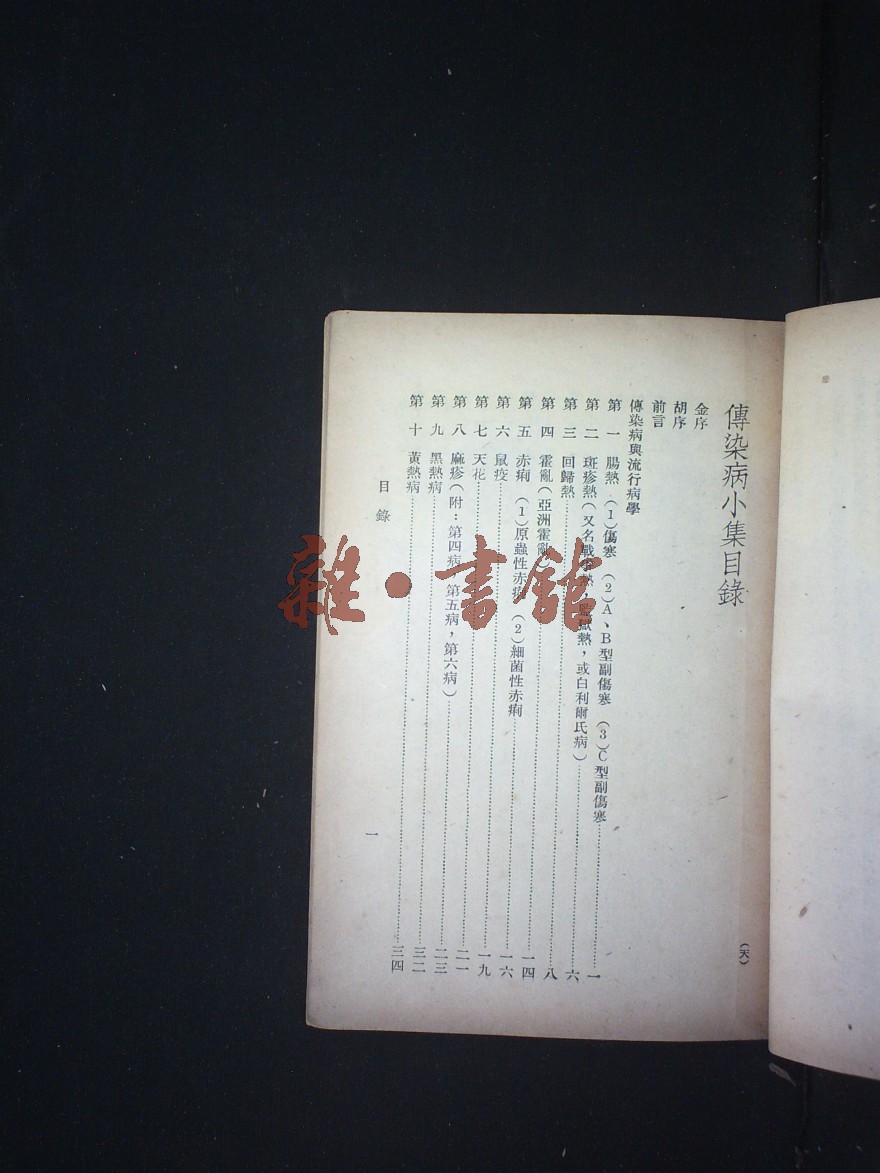 傳染病小集目錄
(天)
金序
胡序
前言
傳染病與流行病學
第一 腸熱 (1)傷寒 (2)A、B型副傷寒 (3)C型副傷寒……一
第二 斑疹熱(又名戰爭熱，監獄熱，或白利爾氏病)……六
第三 回歸熱……八
第四 霍亂(亞洲霍亂)……一四
第五 赤痢 (1)原蟲性赤痢 (2)細菌性赤痢……一六
第六 鼠疫……一九
第七 天花……二一
第八 麻疹(附：第四病，第五病，第六病)……二三
第九 黑熱病……三二
第十 黃熱病……三四
目錄
一
雜·書館